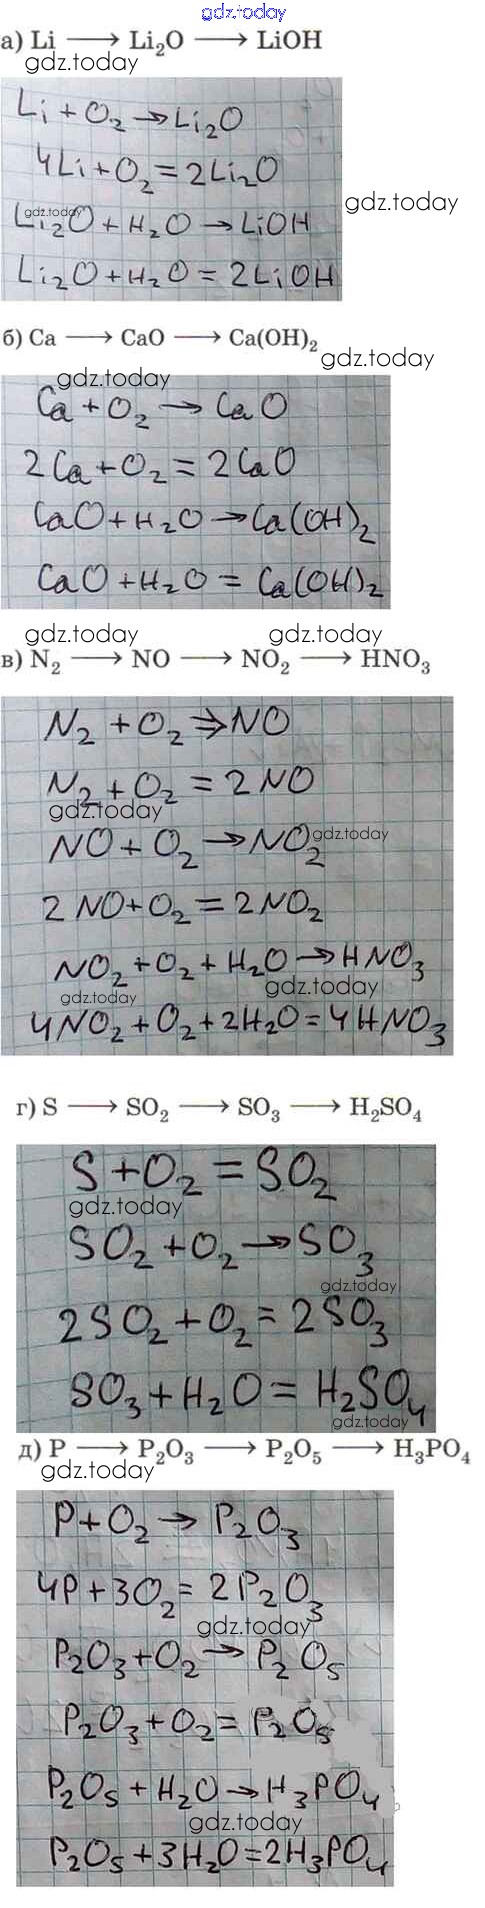 gdz.today
а) Li ⟶ Li₂O ⟶ LiOH
gdz.today
Li + O₂ → Li₂O
4Li + O₂ = 2Li₂O
gdz.today
gdz.today
Li₂O + H₂O → LiOH
Li₂O + H₂O = 2LiOH
б) Ca ⟶ CaO ⟶ Ca(OH)₂
gdz.today
gdz.today
Ca + O₂ → CaO
2Ca + O₂ = 2CaO
CaO + H₂O → Ca(OH)₂
CaO + H₂O = Ca(OH)₂
gdz.today gdz.today
в) N₂ ⟶ NO ⟶ NO₂ ⟶ HNO₃
N₂ + O₂ ⇒ NO
N₂ + O₂ = 2NO
gdz.today
NO + O₂ → NO₂
gdz.today
2NO + O₂ = 2NO₂
NO₂ + O₂ + H₂O → HNO₃
gdz.today gdz.today
4NO₂ + O₂ + 2H₂O = 4HNO₃
г) S ⟶ SO₂ ⟶ SO₃ ⟶ H₂SO₄
S + O₂ = SO₂
gdz.today
SO₂ + O₂ → SO₃
gdz.today
2SO₂ + O₂ = 2SO₃
SO₃ + H₂O = H₂SO₄
gdz.today
д) P ⟶ P₂O₃ ⟶ P₂O₅ ⟶ H₃PO₄
gdz.today
P + O₂ → P₂O₃
4P + 3O₂ = 2P₂O₃
gdz.today
P₂O₃ + O₂ → P₂O₅
P₂O₃ + O₂ = P₂O₅
P₂O₅ + H₂O → H₃PO₄
gdz.today
P₂O₅ + 3H₂O = 2H₃PO₄